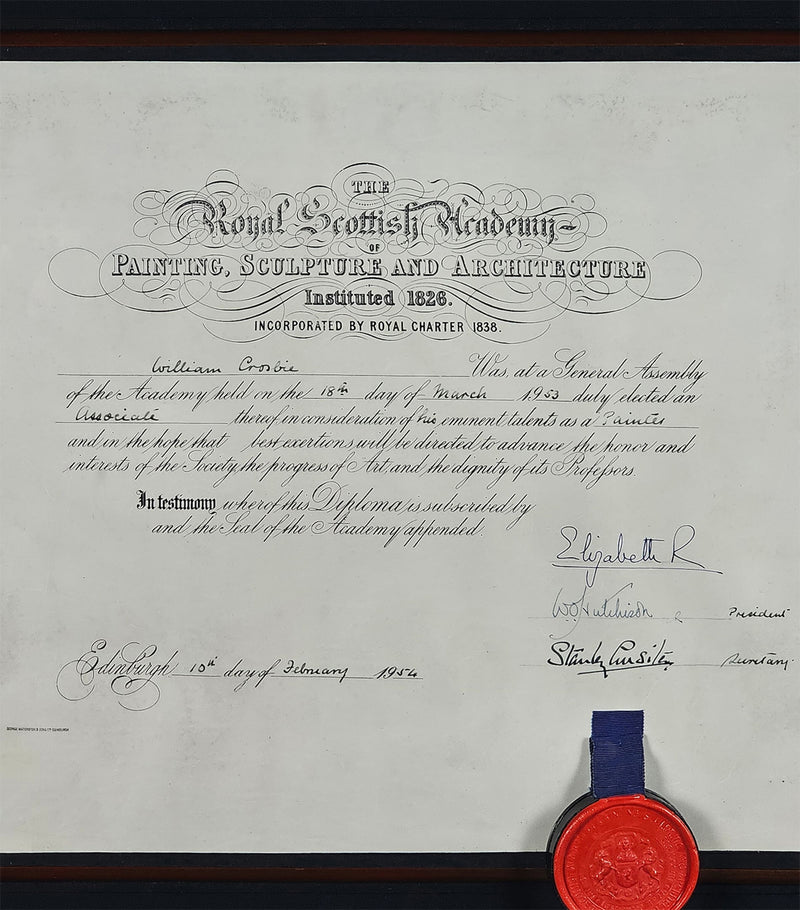 THE
Royal Scottish Academy
OF
PAINTING, SCULPTURE AND ARCHITECTURE
Instituted 1826.
INCORPORATED BY ROYAL CHARTER 1838.
William Crosbie Was, at a General Assembly
of the Academy held on the 18th day of March 1953 duly elected an
Associate thereof in consideration of his eminent talents as a Painter
and in the hope that best exertions will be directed to advance the honor and
interests of the Society, the progress of Art, and the dignity of its Professors.
In testimony wherof this Diploma is subscribed by
and the Seal of the Academy appended.
Elizabeth R
W.O. Hutchison President
Stanley Cursiter Secretary
Edinburgh 10th day of February 1954